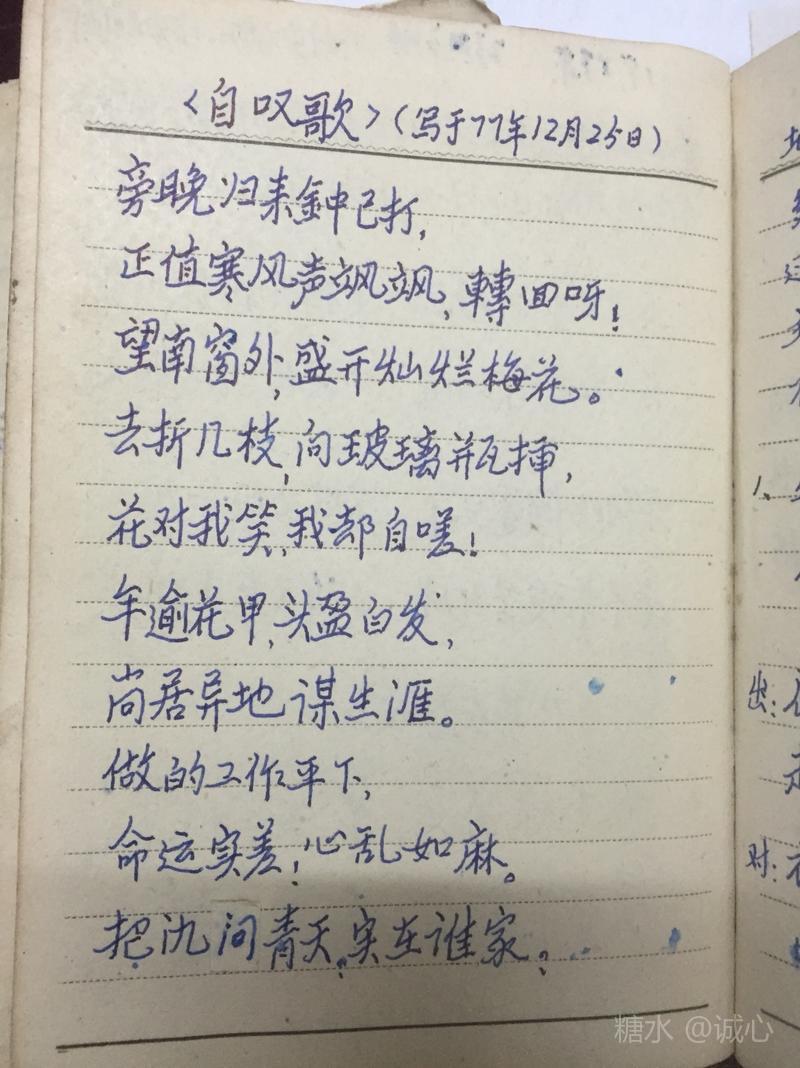 <自叹歌>(写于77年12月25日)
旁晚归来鈡已打,
正值寒风声飒飒,轉回呀!
望南窗外,盛开灿烂梅花。
去折几枝,向玻璃瓶挿,
花对我笑,我却自嗟!
年逾花甲,头盈白发,
尚居异地谋生涯。
做的工作平下,
命运实差!心乱如麻。
把 问青天,实在谁家?
1、
出:
对:
糖水 @诚心